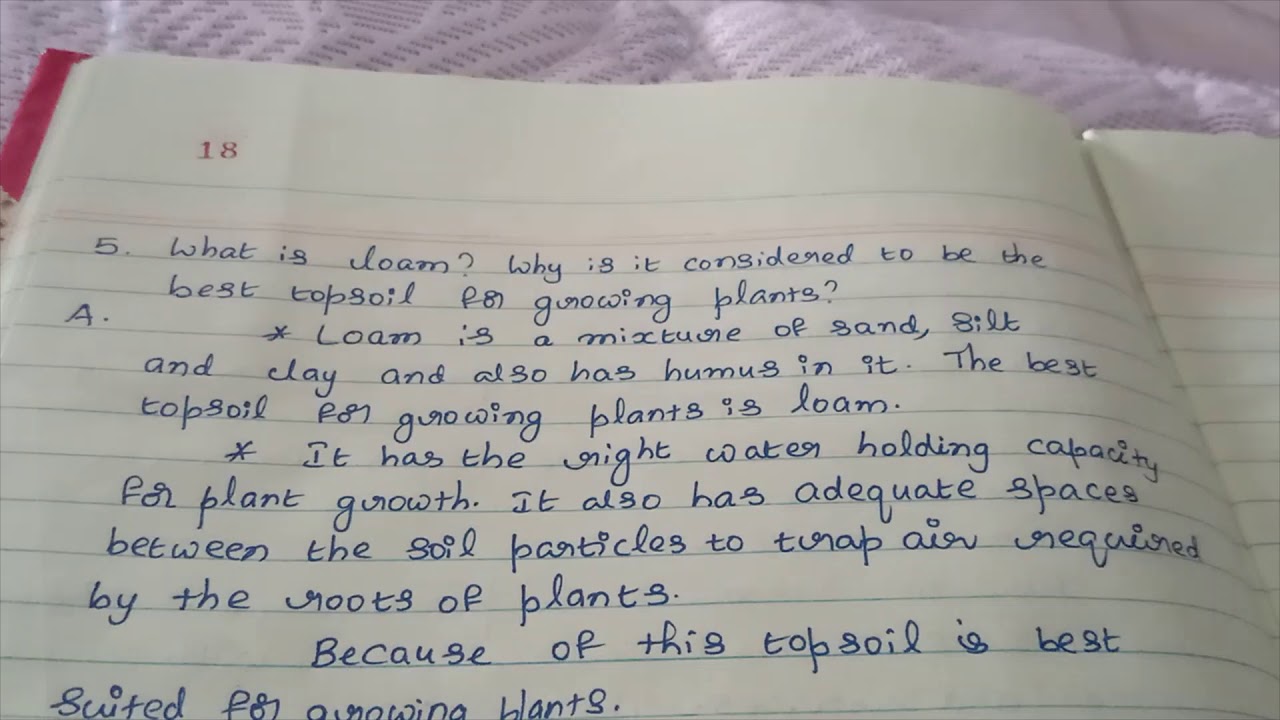 18
5. What is loam? Why is it considered to be the
best topsoil for growing plants?
A. * Loam is a mixture of sand, silt
and clay and also has humus in it. The best
topsoil for growing plants is loam.
* It has the right water holding capacity
for plant growth. It also has adequate spaces
between the soil particles to trap air required
by the roots of plants.
Because of this topsoil is best
suited for growing plants.